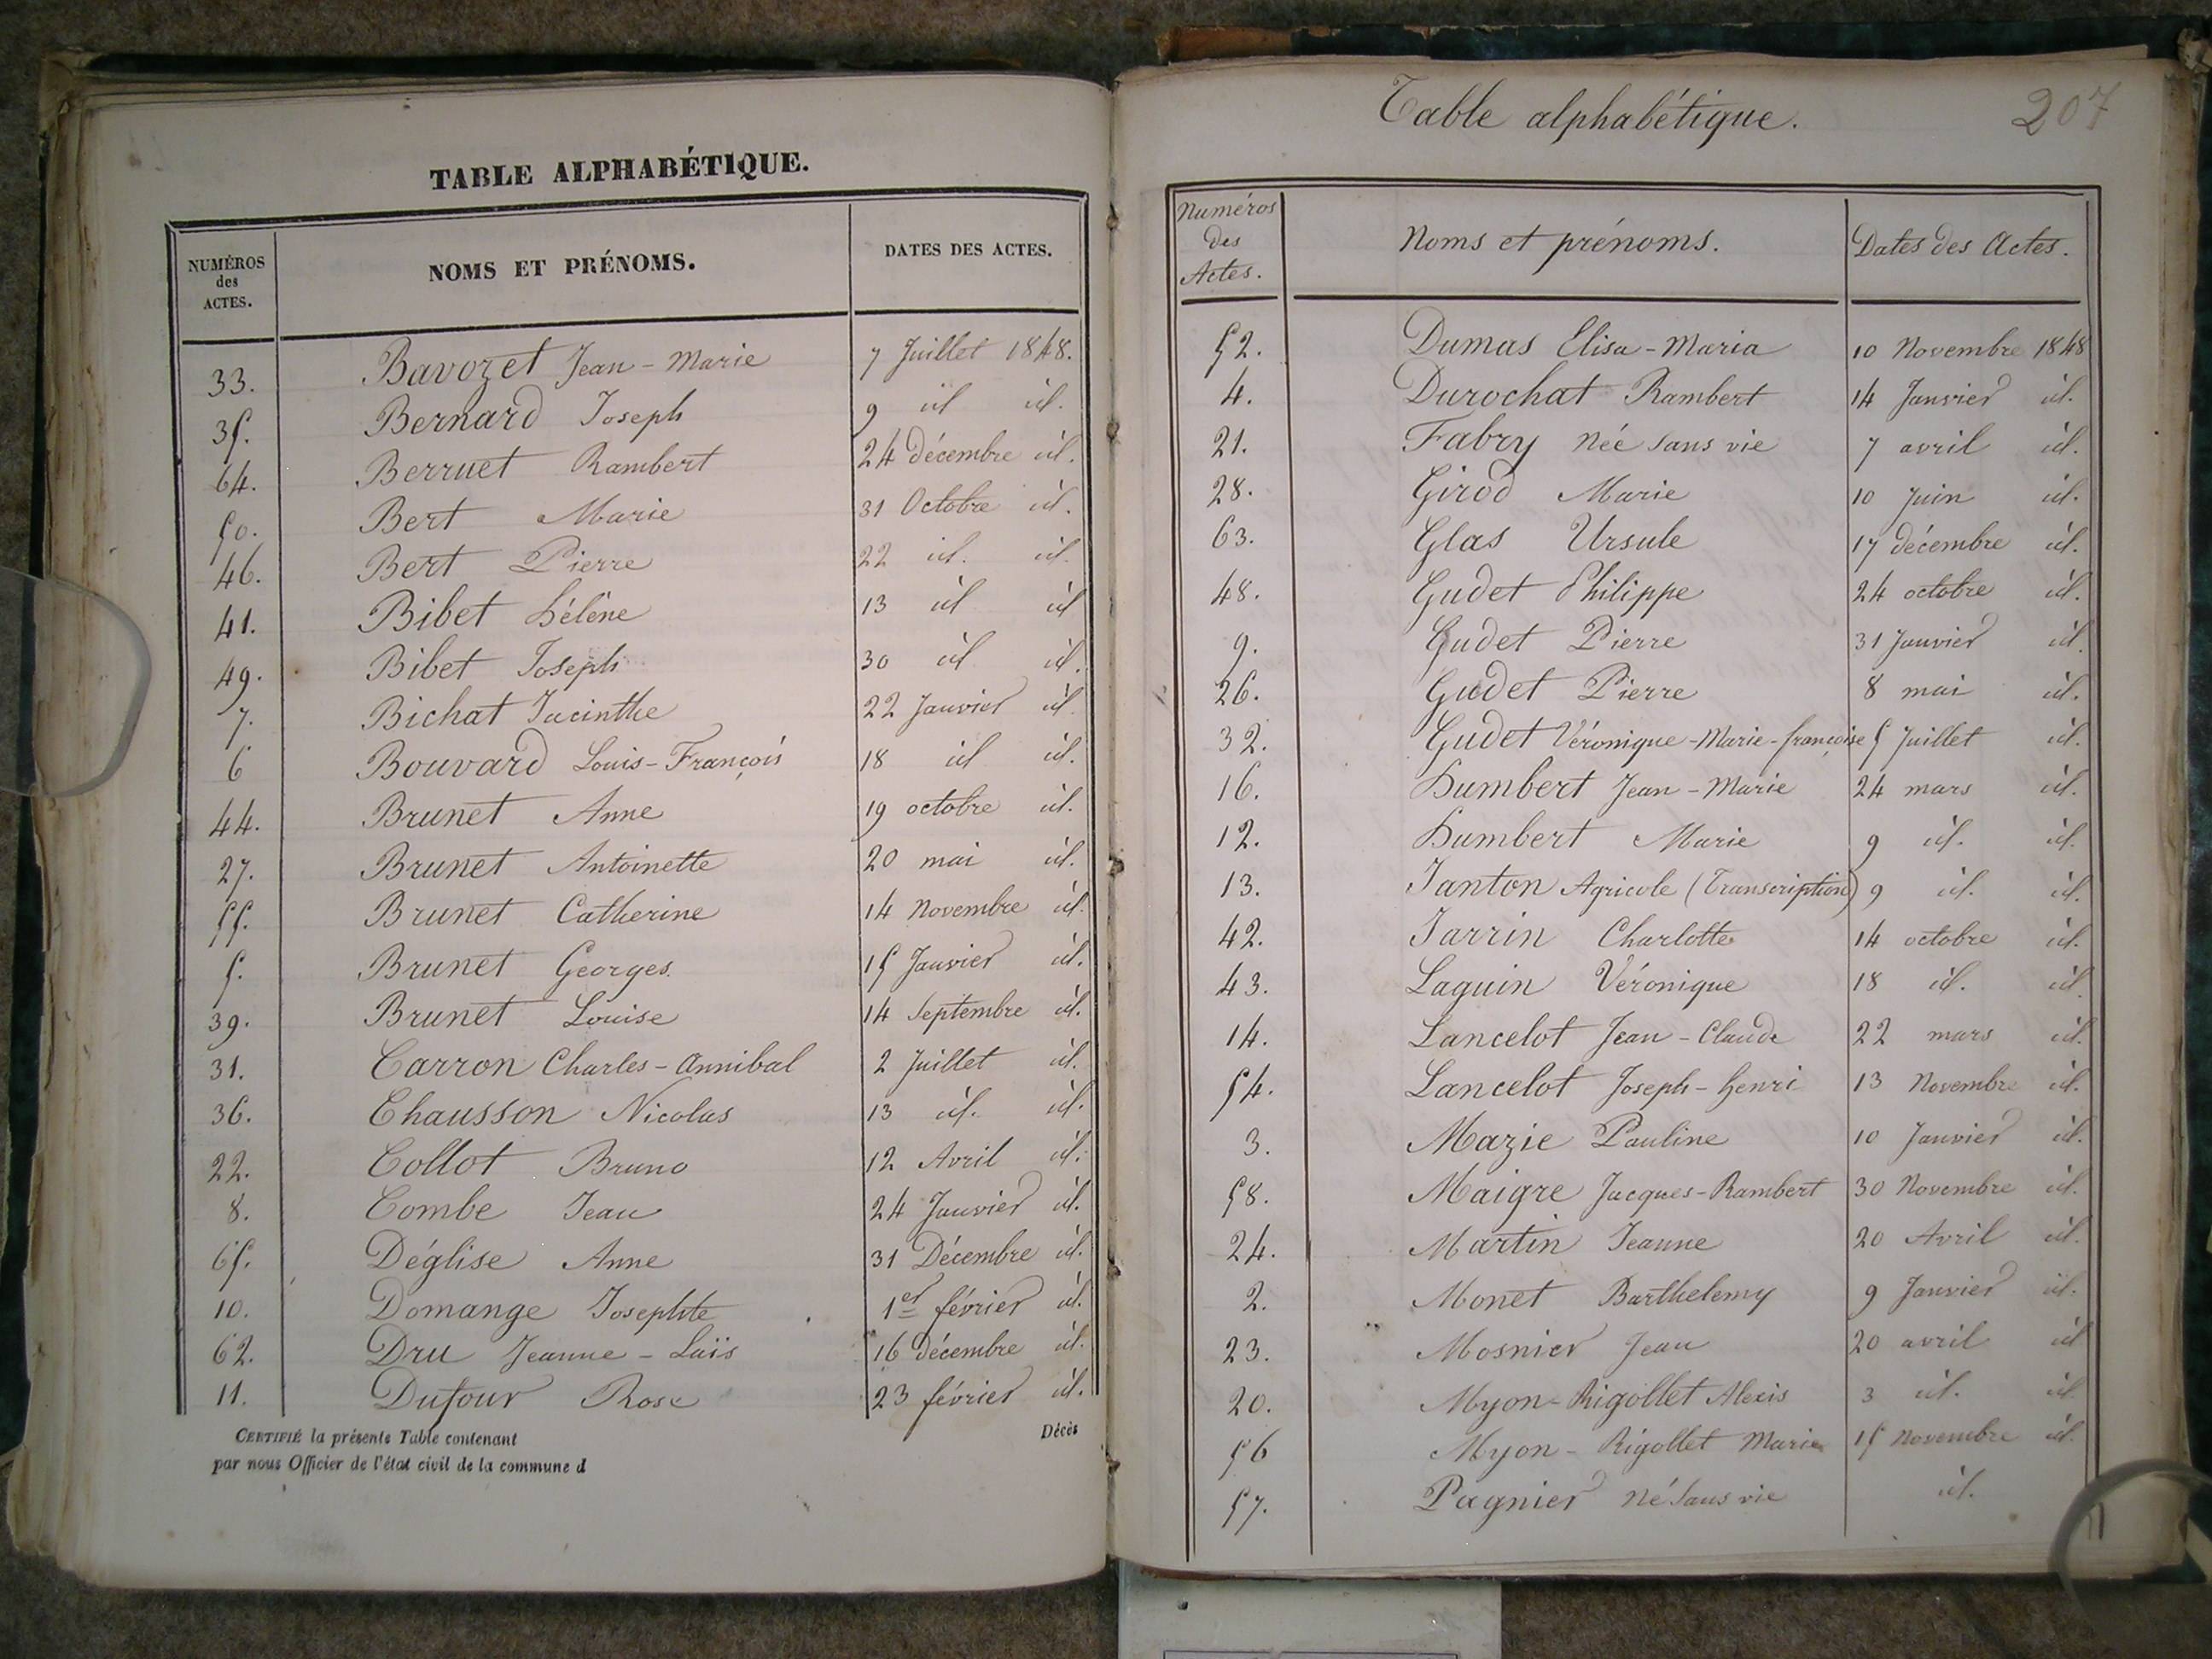 TABLE ALPHABÉTIQUE.
NUMÉROS des ACTES. NOMS ET PRÉNOMS. DATES DES ACTES.
33. Bavozet Jean-Marie 7 Juillet 1848.
35. Bernard Joseph 9 id id.
64. Berruet Rambert 24 décembre id.
50. Bert Marie 31 Octobre id.
46. Bert Pierre 22 id. id.
41. Bibet hélène 13 id id
49. Bibet Joseph 30 id id.
7. Bichat Jacinthe 22 Janvier id.
6 Bouvard Louis-François 18 id id.
44. Brunet Anne 19 octobre id.
27. Brunet Antoinette 20 mai id.
55. Brunet Catherine 14 Novembre id.
5. Brunet Georges. 15 Janvier id.
39. Brunet Louise 14 Septembre id.
31. Carron Charles-Annibal 2 Juillet id.
36. Chausson Nicolas 13 id. id.
22. Collot Bruno 12 Avril id.
8. Combe Jean 24 Janvier id.
65. Déglise Anne 31 Décembre id.
10. Domange Josephte 1er février id.
62. Dru Jeanne-Laïs 16 décembre id.
11. Dufour Rose 23 février id.
CERTIFIÉ la présente Table contenant Décès
par nous Officier de l'état civil de la commune d
Table alphabétique. 207
Numéros des Actes. Noms et prénoms. Dates des Actes.
52. Dumas Elisa-Maria 10 Novembre 1848
4. Durochat Rambert 14 Janvier id.
21. Fabry née sans vie 7 avril id.
28. Girod Marie 10 Juin id.
63. Glas Ursule 17 décembre id.
48. Gudet Philippe 24 octobre id.
9. Gudet Pierre 31 Janvier id.
26. Gudet Pierre 8 mai id.
32. Gudet Véronique-Marie-françoise 5 Juillet id.
16. humbert Jean-Marie 24 mars id.
12. humbert Marie 9 id. id.
13. Janton Agricole (Transcription) 9 id. id.
42. Jarrin Charlotte 14 octobre id.
43. Laguin Véronique 18 id. id.
14. Lancelot Jean-Claude 22 mars id.
54. Lancelot Joseph-henri 13 Novembre id.
3. Mazie Pauline 10 Janvier id.
58. Maigre Jacques-Rambert 30 Novembre id.
24. Martin Jeanne 20 Avril id.
2. Monet Barthelemy 9 Janvier id.
23. Mosnier Jean 20 avril id
20. Myon-Rigollet Alexis 3 id. id
56 Myon-Rigollet Marie 15 novembre id.
57. Pagnier né sans vie id.